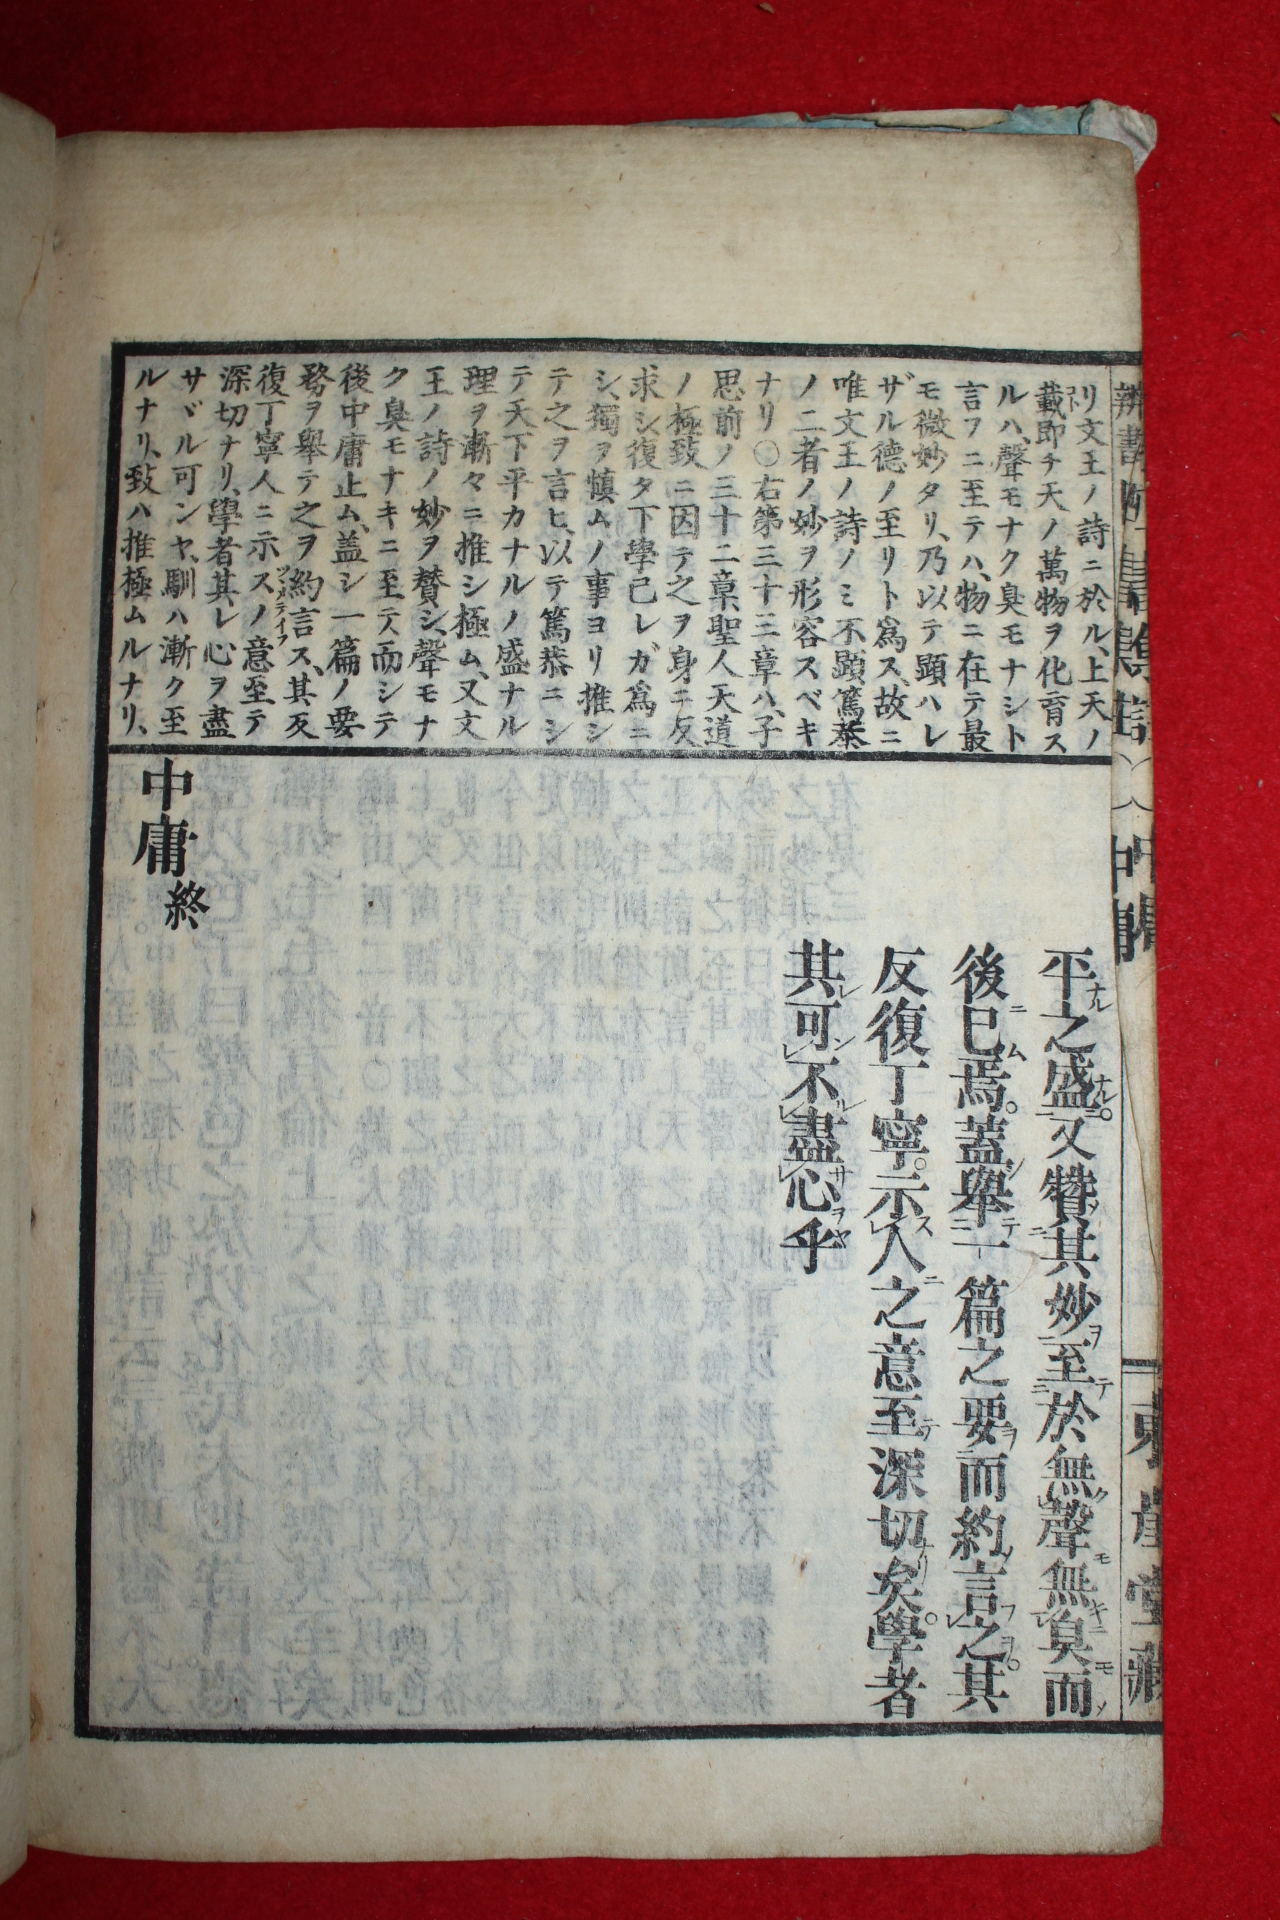 リ文王ノ詩ニ於ル、上天ノ
載即チ天ノ萬物ヲ化育ス
ルハ、聲モナク臭モナシト
言フニ至テハ、物ニ在テ最
モ微妙タリ、乃以テ顯ハレ
ザル德ノ至リト爲ス、故ニ
唯文王ノ詩ノミ不顯篤恭
ノ二者ノ妙ヲ形容スベキ
ナリ〇右第三十三章ハ、子
思前ノ三十二章、聖人天道
ノ極致ニ因テ之ヲ身ニ反
求シ、復タ下學己レガ爲ニ
シ、獨ヲ愼ムノ事ヨリ推シ
テ之ヲ言ヒ、以テ篤恭ニシ
テ天下平カナルノ盛ナル
理ヲ漸々ニ推シ極ム、又文
王ノ詩ノ妙ヲ賛シ、聲モナ
ク臭モナキニ至テ、而シテ
後中庸止ム、蓋シ一篇ノ要
務ヲ舉テ之ヲ約言ス、其反
復丁寧人ニ示スノ意至テ
深切ナリ、學者其レ心ヲ盡
サヾル可ンヤ、馴ハ漸ク至
ルナリ、致ハ推極ムルナリ、
平ナル之盛ナル。又贊其妙ヲ至テ於無ク聲無キニモ臭而
後ニ已ム焉。蓋シ舉テ一篇之要ヲ而約言フ之ヲ。其
反復丁寧。示ス人ニ之意至テ深切ナリ矣。學者
其レ可ン不ル盡サ心ヲ乎ヤ
中庸終